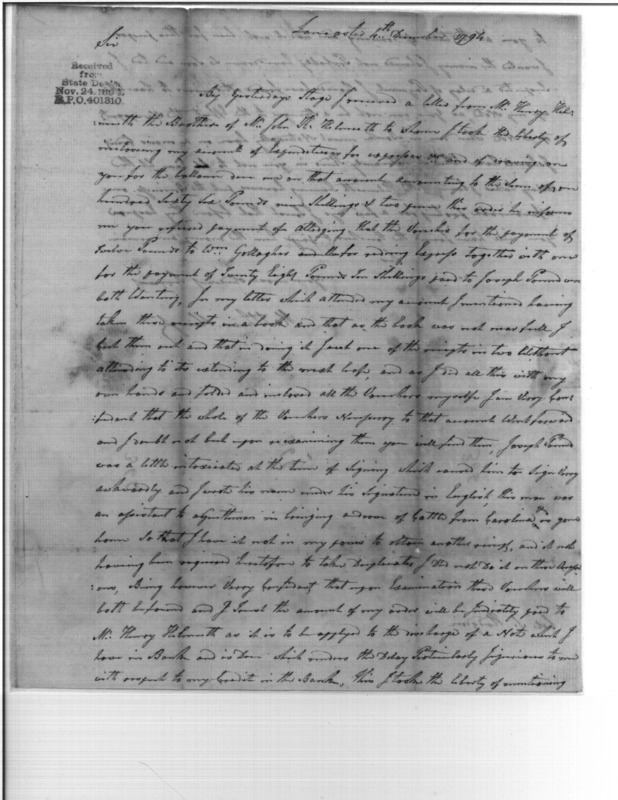 Lancaster 4th December 1794
Sir
Received
from
State Dept.
Nov. 24. 1894
R.P.O. 401310
By Yesterdays Stage I received a letter from Mr. Henry Hel-
muth the Brother of Mr. John K. Helmuth to whom I took the liberty of
inclosing my account of Expenditures for expresses and of on
you for the ballance due me on that account amounting to the Sum of one
hundred Sixty Six Pounds nine Shillings & two pence this order he informs
me your refused payment of alledging that the Voucher for the payment of
twelve Pounds to Wm. Gallagher and for riding Express together with one
for the payment of Twenty Eight Pounds Ten Shillings paid to Joseph were
both Wanting, In my letter which attended my account I mentioned having
taken those receipts in a book and that as the book was not near full I
cut them out and that in doing it I cut one of the receipts in two Without
attending to its extending to the next leafe, and as I did all this with my
own hands and folded and inclosed all the Vouchers myselfe I am Very Con-
:fident that the whole of the Vouchers Necessary to that account Went forward
and I doubt not but upon reexamining them you will find them Joseph
was a little intoxicated at the time of Signing which caused him to Sign Very
awkwardly and I wrote his name under his Signature in English, this man was
an assistant to a Gentleman in bringing a drove of Cattle from Carolina & is gone
home So that I have it not in my power to obtain another receipt, and it not
having been required heretofore to take Duplicates I did not Do it on these
ones, Being however Very Confident that upon Examination those Vouchers will
both be found and I trust the amount of my order will be paid to
Mr. Henry Helmuth as it is to be applied to the discharge of a Note which I
have in Bank and is due which renders the Delay Particularly Injurious to me
with respect to my Credit in the Bank, This I took the liberty of mentioning